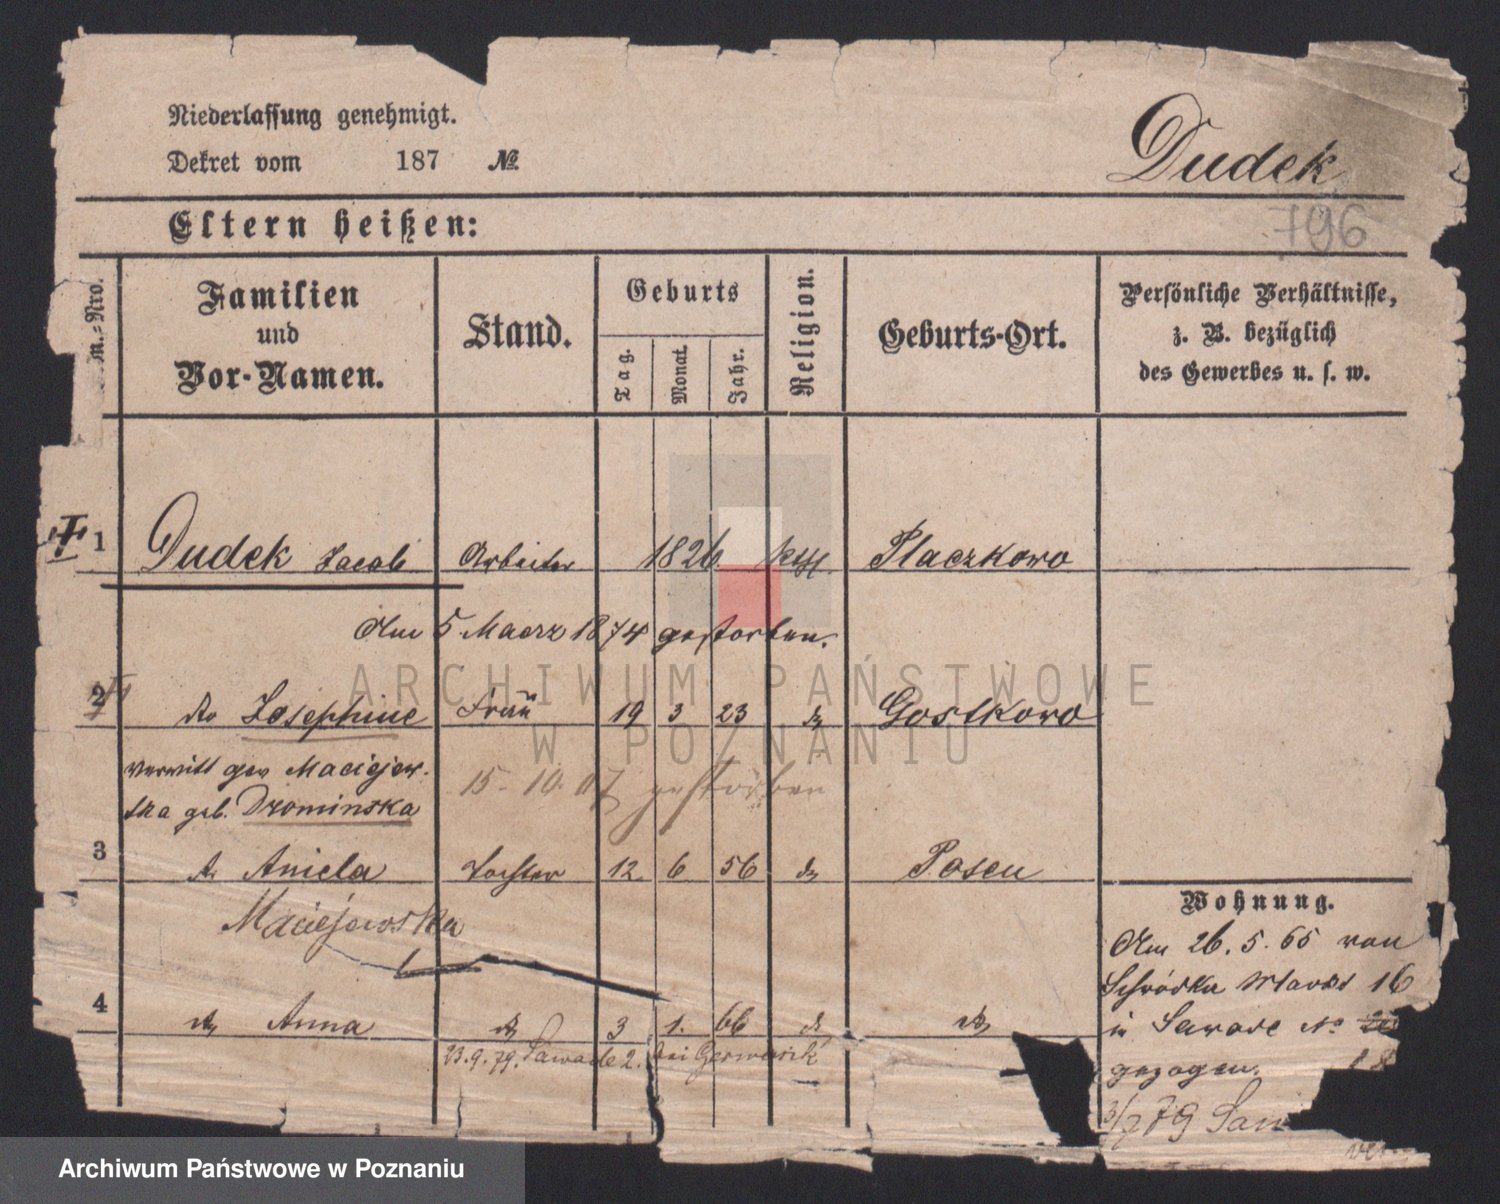 Niederlassung genehmigt.
Dekret vom 187 №
Dudek
796
Eltern heißen:
M.-Nro.
Familien
und
Vor-Namen.
Stand.
Geburts
Tag.
Monat.
Jahr.
Religion.
Geburts-Ort.
Persönliche Verhältnisse,
z. B. bezüglich
des Gewerbes u. s. w.
1 Dudek Jacob Arbeiter 1826 kath Placzkowo
Am 5 Maerz 1874 gestorben.
2 do Josephine Frau 19 3 23 do Gostkowo
verwitt gew Maciejew-
ska geb. Drominska
15. 10. 07 gestorben
3 do Aniela Tochter 12. 6 56 do Posen
Maciejewska
4 do Anna do 3 1. 66 do do
23.9.79. Zawade 2. bei
Wohnung.
Am 26. 5. 65 von
Schrodka Markt 16
in Zawade No
gezogen.
3/7 79 Zaw
ARCHIWUM PAŃSTWOWE
W POZNANIU
Archiwum Państwowe w Poznaniu